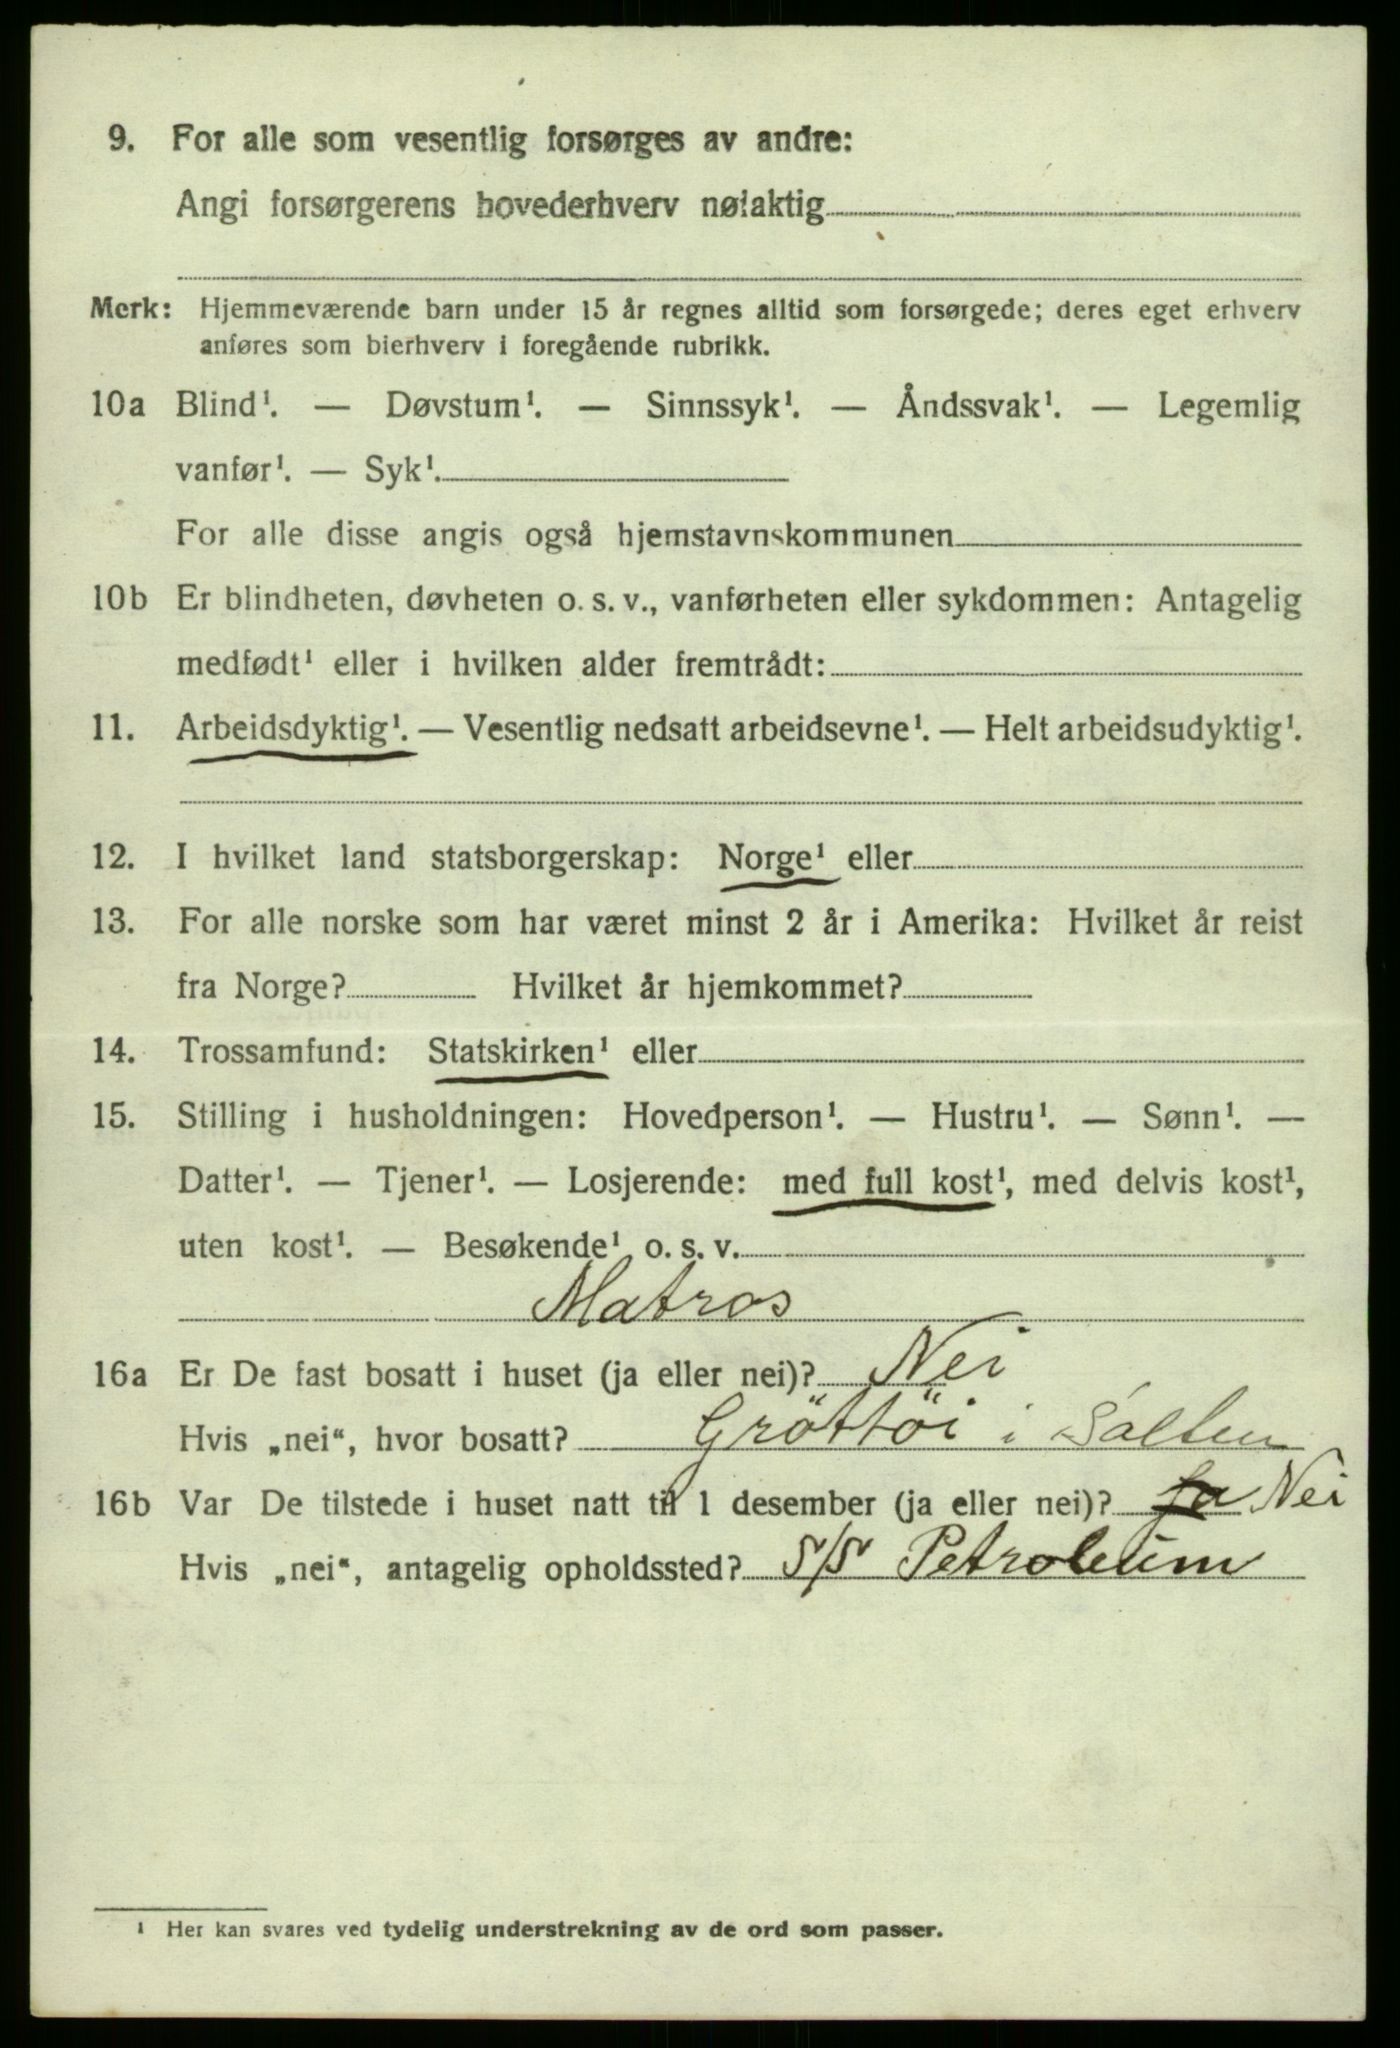 9. For alle som vesentlig forsørges av andre:
Angi forsørgerens hovederhverv nøiaktig
Merk: Hjemmeværende barn under 15 år regnes alltid som forsørgede; deres eget erhverv
anføres som bierhverv i foregående rubrikk.
10a Blind¹. — Døvstum¹. — Sinnssyk¹. — Åndssvak¹. — Legemlig
vanfør¹. — Syk¹.
For alle disse angis også hjemstavnskommunen
10b Er blindheten, døvheten o. s. v., vanførheten eller sykdommen: Antagelig
medfødt¹ eller i hvilken alder fremtrådt:
11. Arbeidsdyktig¹. — Vesentlig nedsatt arbeidsevne¹. — Helt arbeidsudyktig¹.
12. I hvilket land statsborgerskap: Norge¹ eller
13. For alle norske som har været minst 2 år i Amerika: Hvilket år reist
fra Norge? Hvilket år hjemkommet?
14. Trossamfund: Statskirken¹ eller
15. Stilling i husholdningen: Hovedperson¹. — Hustru¹. — Sønn¹. —
Datter¹. — Tjener¹. — Losjerende: med full kost¹, med delvis kost¹,
uten kost¹. — Besøkende¹ o. s. v.
Matros
16a Er De fast bosatt i huset (ja eller nei)? Nei
Hvis „nei“, hvor bosatt? Gröttöi i Salten
16b Var De tilstede i huset natt til 1 desember (ja eller nei)? Ja Nei
Hvis „nei“, antagelig opholdssted? S/S Petroleum
¹ Her kan svares ved tydelig understrekning av de ord som passer.